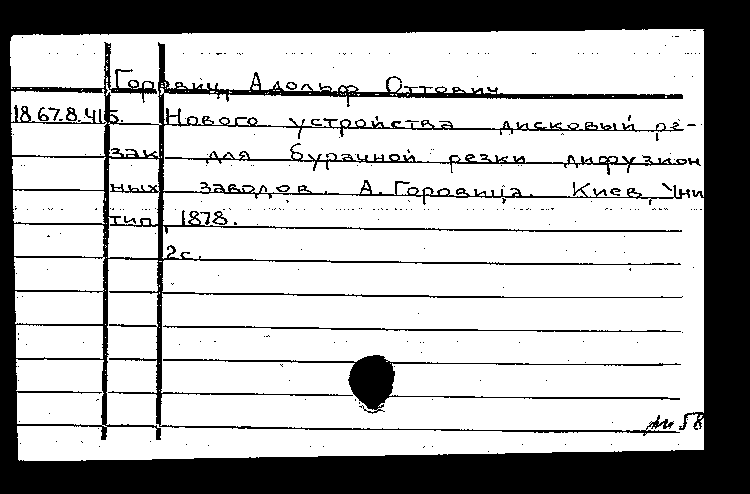 Горовиц, Адольф Оттович
18.67.8.415. Нового устройства дисковый ре-
зак для бурачной резки дифузион
ных заводов. А. Горовица. Киев, Уни
тип, 1878.
2с.
58